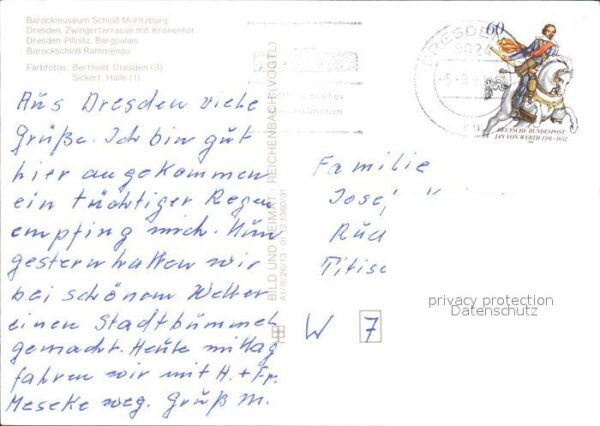 Barockmuseum Schloß Moritzburg
Dresden, Zwingerterrasse mit Kronentor
Dresden-Pillnitz, Bergpalais
Barockschloß Rammenau
Farbfotos: Berthold, Dresden (3)
Sickert, Halle (1)
Aus Dresden viele
Grüße. Ich bin gut
hier angekommen
ein tüchtiger Regen
empfing mich. Nun
gestern hatten wir
bei schönem Wetter
einen Stadtbummel
gemacht. Heute mittag
fahren wir mit H. + Fr.
Meseke weg. Gruß M.
BILD UND HEIMAT · REICHENBACH (VOGTL)
A1/III/26/13
DRESDEN
8024
60
DEUTSCHE BUNDESPOST
JAN VON WERTH 1591-1652
Familie
Josef
Rud
Titise
W 7
privacy protection
Datenschutz